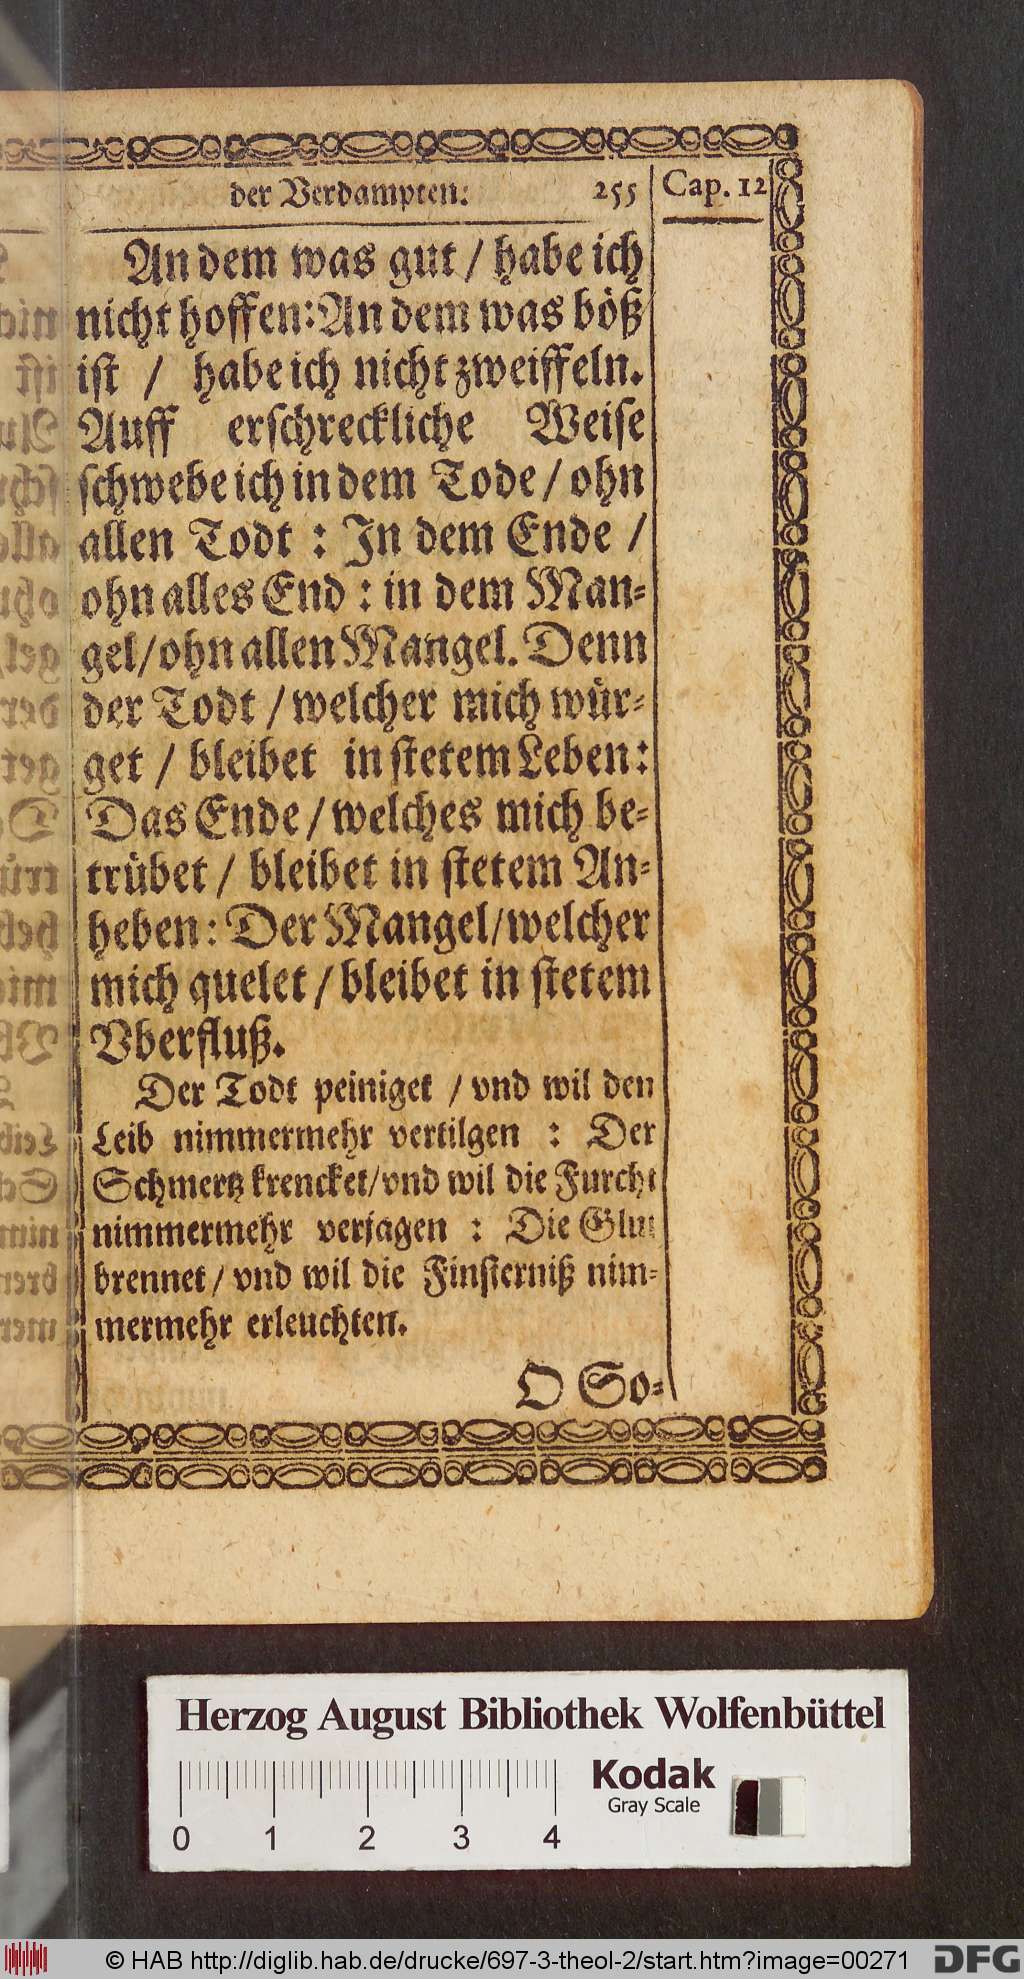 der Verdampten: 255 Cap. 12
An dem was gut / habe ich
nicht hoffen: An dem was böß
ist / habe ich nicht zweiffeln.
Auff erschreckliche Weise
schwebe ich in dem Tode / ohn
allen Todt : In dem Ende /
ohn alles End : in dem Man-
gel/ohn allen Mangel. Denn
der Todt / welcher mich wür-
get / bleibet in stetem Leben:
Das Ende / welches mich be-
trübet / bleibet in stetem An-
heben: Der Mangel/welcher
mich quelet / bleibet in stetem
Vberfluß.
Der Todt peiniget / vnd wil den
Leib nimmermehr vertilgen : Der
Schmertz krencket/vnd wil die Furcht
nimmermehr verjagen : Die Glut
brennet / vnd wil die Finsterniß nim-
mermehr erleuchten.
O So-
Herzog August Bibliothek Wolfenbüttel
Kodak
Gray Scale
0 1 2 3 4
© HAB http://diglib.hab.de/drucke/697-3-theol-2/start.htm?image=00271
DFG